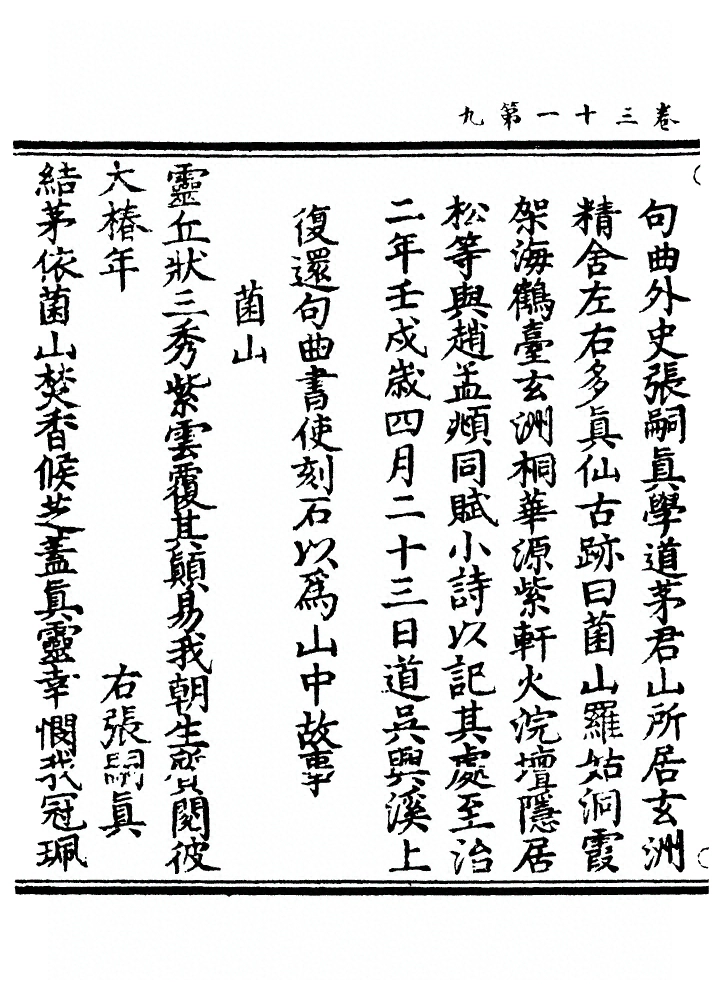 卷三十一第九
句曲外史張嗣眞學道茅君山所居玄洲
精舍左右多眞仙古跡曰菌山羅姑洞霞
架海鶴臺玄洲桐華源紫軒火浣壇隱居
松等與趙孟頫同賦小詩以記其處至治
二年壬戌歲四月二十三日道吳興溪上
復還句曲書使刻石以爲山中故事
菌山
靈丘狀三秀紫雲覆其顚易我朝生質閱彼
大椿年
右張嗣眞
結茅依菌山焚香候芝蓋眞靈幸憫我冠珮